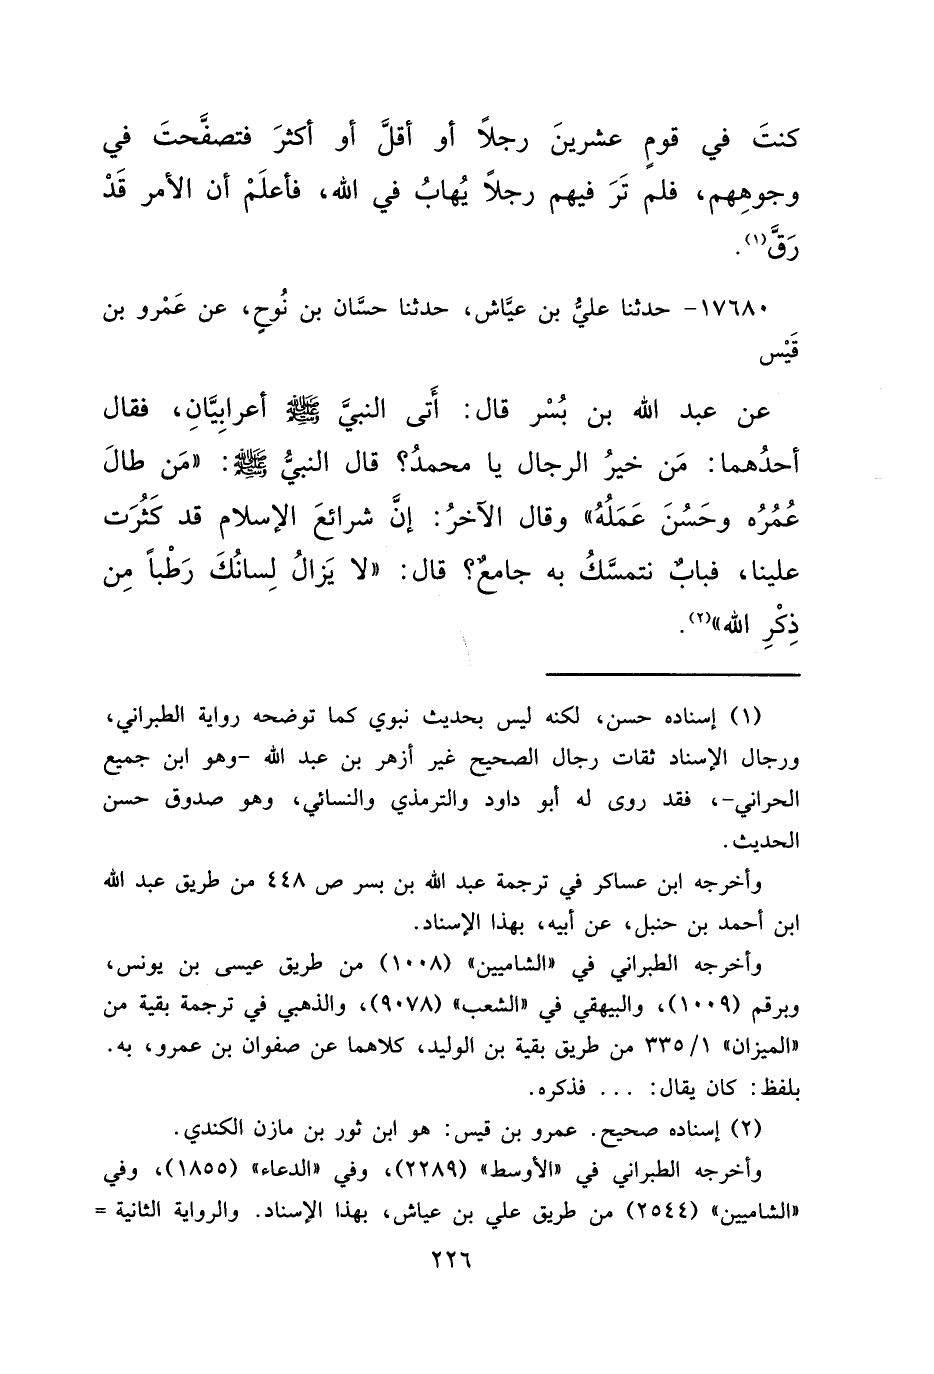 كنتَ في قومٍ عشرينَ رجلاً أو أقلَّ أو أكثرَ فتصفَّحتَ في
وجوهِهم، فلم تَرَ فيهم رجلاً يُهابُ في الله، فأعلَمْ أن الأمر قَدْ
رَقَّ(١).
١٧٦٨٠- حدثنا عليُّ بن عيَّاش، حدثنا حسَّان بن نُوحٍ، عن عَمْرو بن
قَيْس
عن عبد الله بن بُسْر قال: أَتى النبيَّ ﷺ أعرابِيَّانِ، فقال
أحدُهما: مَن خيرُ الرجال يا محمدُ؟ قال النبيُّ ﷺ: «مَن طالَ
عُمُرُه وحَسُنَ عَمَلُهُ» وقال الآخرُ: إنَّ شرائعَ الإسلام قد كَثُرَت
علينا، فبابٌ نتمسَّكُ به جامعٌ؟ قال: «لا يَزالُ لِسانُكَ رَطْباً مِن
ذِكْرِ الله»(٢).
(١) إسناده حسن، لكنه ليس بحديث نبوي كما توضحه رواية الطبراني،
ورجال الإسناد ثقات رجال الصحيح غير أزهر بن عبد الله -وهو ابن جميع
الحراني-، فقد روى له أبو داود والترمذي والنسائي، وهو صدوق حسن
الحديث.
وأخرجه ابن عساكر في ترجمة عبد الله بن بسر ص ٤٤٨ من طريق عبد الله
ابن أحمد بن حنبل، عن أبيه، بهذا الإسناد.
وأخرجه الطبراني في «الشاميين» (١٠٠٨) من طريق عيسى بن يونس،
وبرقم (١٠٠٩)، والبيهقي في «الشعب» (٩٠٧٨)، والذهبي في ترجمة بقية من
«الميزان» ٣٣٥/١ من طريق بقية بن الوليد، كلاهما عن صفوان بن عمرو، به.
بلفظ: كان يقال: ... فذكره.
(٢) إسناده صحيح. عمرو بن قيس: هو ابن ثور بن مازن الكندي.
وأخرجه الطبراني في «الأوسط» (٢٢٨٩)، وفي «الدعاء» (١٨٥٥)، وفي
«الشاميين» (٢٥٤٤) من طريق علي بن عياش، بهذا الإسناد. والرواية الثانية =
٢٢٦